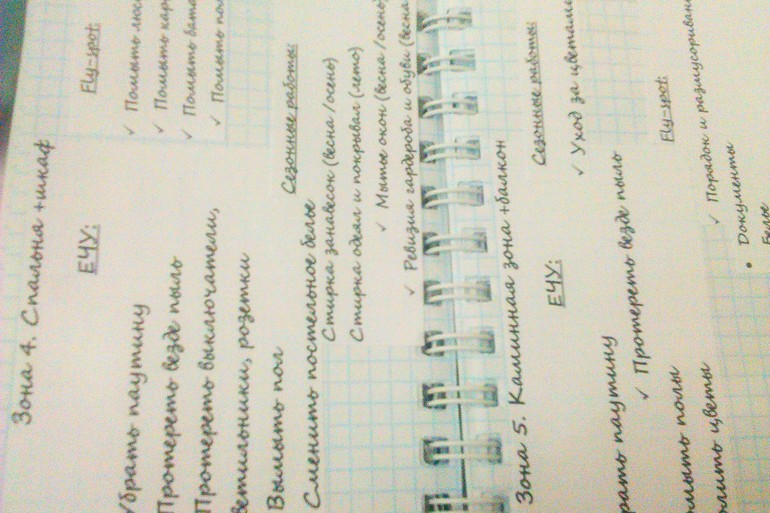 Зона 4. Спальня +шкаф
ЕЧУ:
Убрать паутину
Протереть везде пыль
Протереть выключатели,
светильники, розетки
Вымыть пол
Сменить постельное белье
Fly-spot:
✓ Помыть
✓ Помыть
✓ Помыть
✓ Помыть
Сезонные работы:
Стирка занавесок (весна /осень)
Стирка одеял и покрывал (лето)
✓ Мытье окон (весна /осень)
✓ Ревизия гардероба и обуви (весна
Зона 5. Каминная зона +балкон
ЕЧУ:
рать паутину
✓ Протереть везде пыль
мыть полы
лить цветы
Сезонные работы:
✓ Уход за цветами
Fly-spot:
✓ Порядок и размусоривани
• Документы
Белье